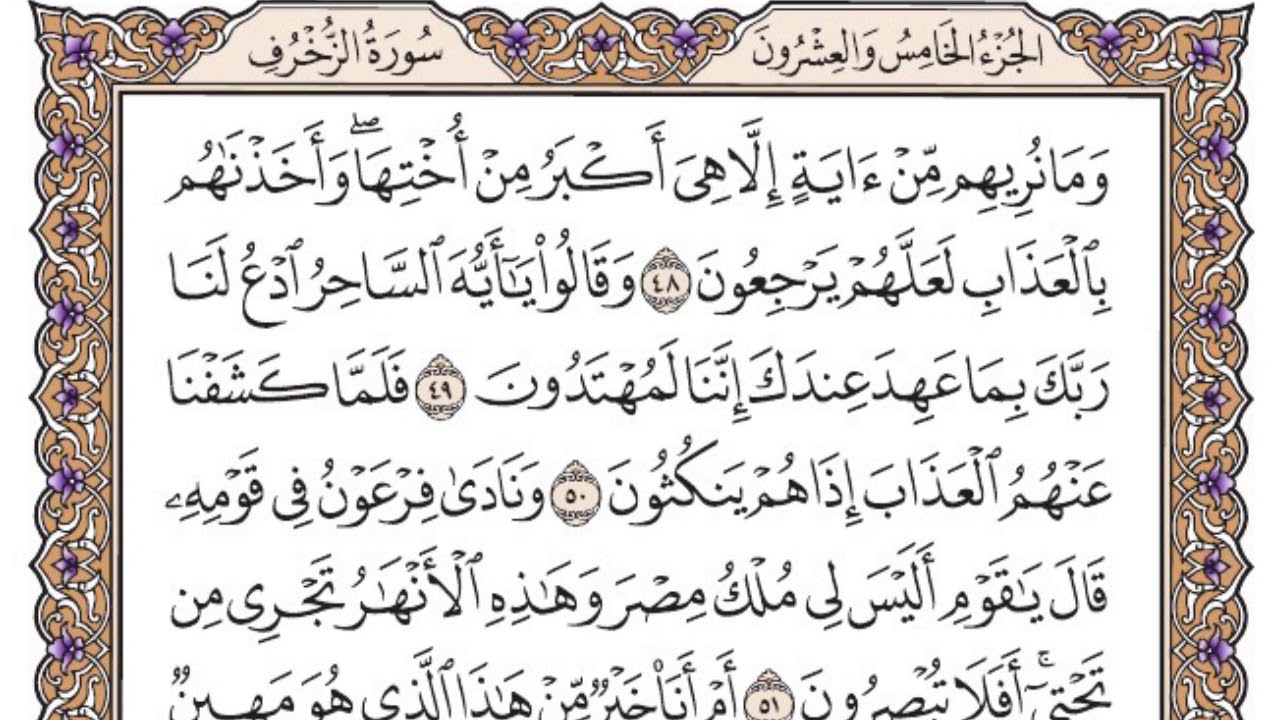 الجُزْءُ الخَامِسُ وَالعِشْرُونَ
سُورَةُ الزُّخْرُفِ
وَمَا نُرِيهِم مِّنْ ءَايَةٍ إِلَّا هِىَ أَكْبَرُ مِنْ أُخْتِهَا ۖ وَأَخَذْنَٰهُم
بِٱلْعَذَابِ لَعَلَّهُمْ يَرْجِعُونَ ٤٨ وَقَالُوا۟ يَٰٓأَيُّهَ ٱلسَّاحِرُ ٱدْعُ لَنَا
رَبَّكَ بِمَا عَهِدَ عِندَكَ إِنَّنَا لَمُهْتَدُونَ ٤٩ فَلَمَّا كَشَفْنَا
عَنْهُمُ ٱلْعَذَابَ إِذَا هُمْ يَنكُثُونَ ٥٠ وَنَادَىٰ فِرْعَوْنُ فِى قَوْمِهِۦ
قَالَ يَٰقَوْمِ أَلَيْسَ لِى مُلْكُ مِصْرَ وَهَٰذِهِ ٱلْأَنْهَٰرُ تَجْرِى مِن
تَحْتِىٓ ۚ أَفَلَا تُبْصِرُونَ ٥١ أَمْ أَنَا۠ خَيْرٌ مِّنْ هَٰذَا ٱلَّذِى هُوَ مَهِينٌ